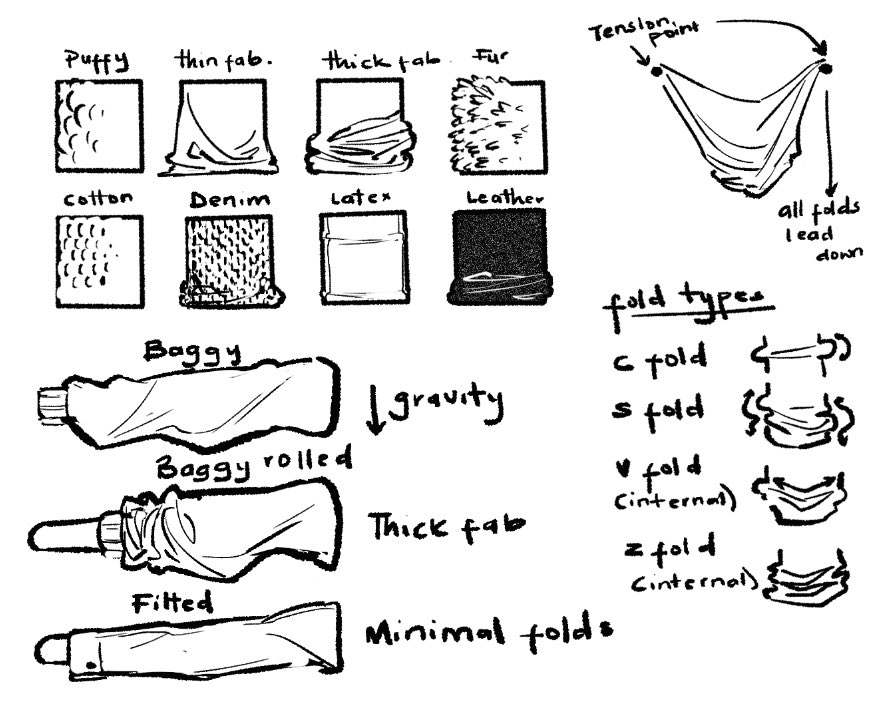 Tension point
Puffy
thin fab.
thick fab.
Fur
cotton
Denim
Latex
Leather
all folds
lead
down
fold types
C fold
S fold
V fold
(internal)
Z fold
(internal)
Baggy
gravity
Baggy rolled
Thick fab
Fitted
Minimal folds